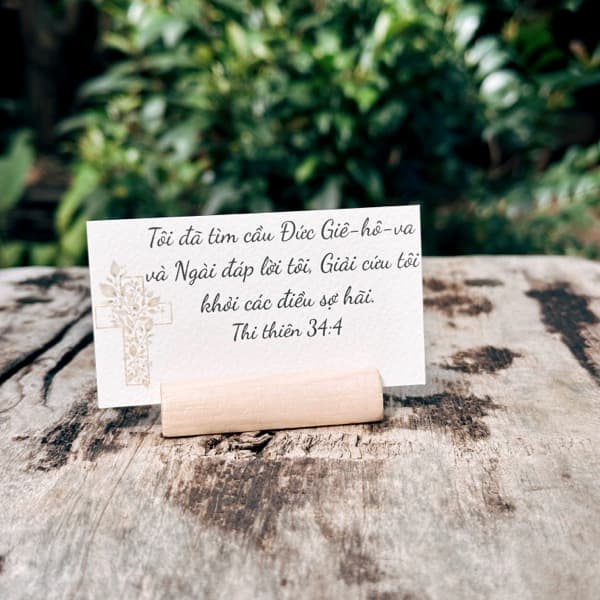 Tôi đã tìm cầu Đức Giê-hô-va
và Ngài đáp lời tôi, Giải cứu tôi
khỏi các điều sợ hãi.
Thi thiên 34:4